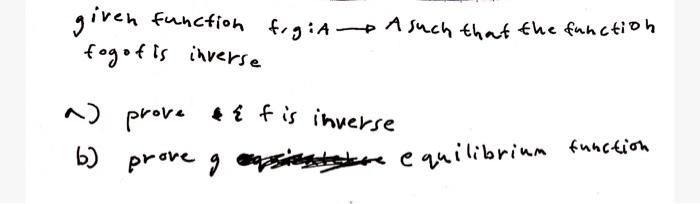 given function f,g:A → A such that the function
fogof is inverse
a) prove f is inverse
b) prove g equilibrium function